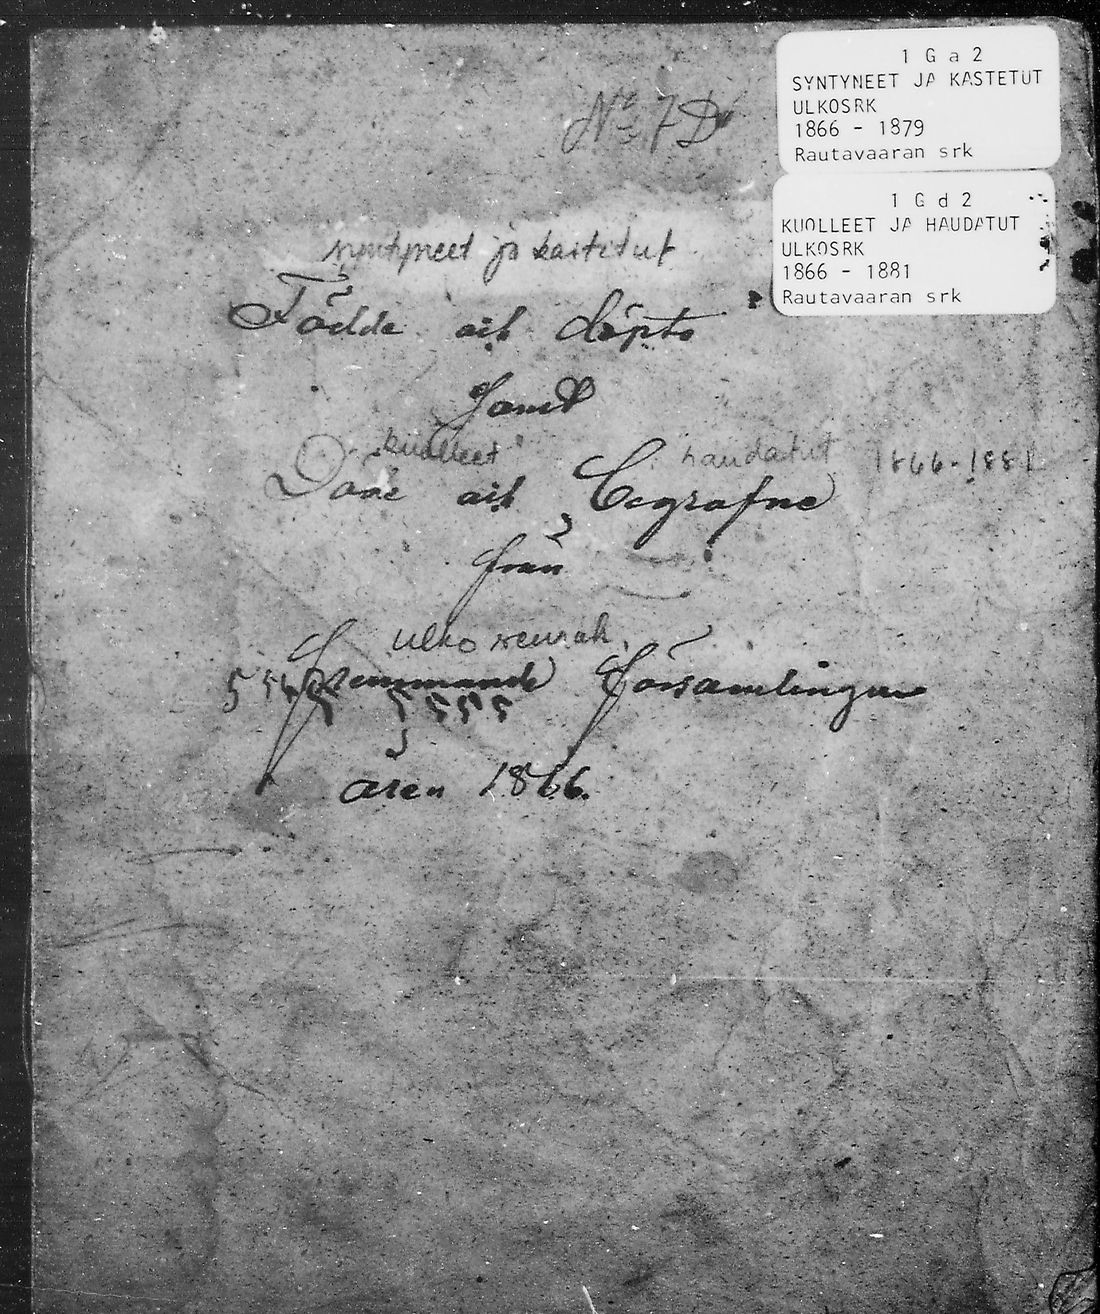 1 G a 2
SYNTYNEET JA KASTETUT
ULKOSRK
1866 - 1879
Rautavaaran srk
1 G d 2
KUOLLEET JA HAUDATUT
ULKOSRK
1866 - 1881
Rautavaaran srk
No 7 D
syntyneet ja kastetut
Födde och döpte
Samt
kuolleet haudatut 1866-1881
Döde och Begrafne
från
ulko seurak.
Främmande Församlingar
åren 1866.